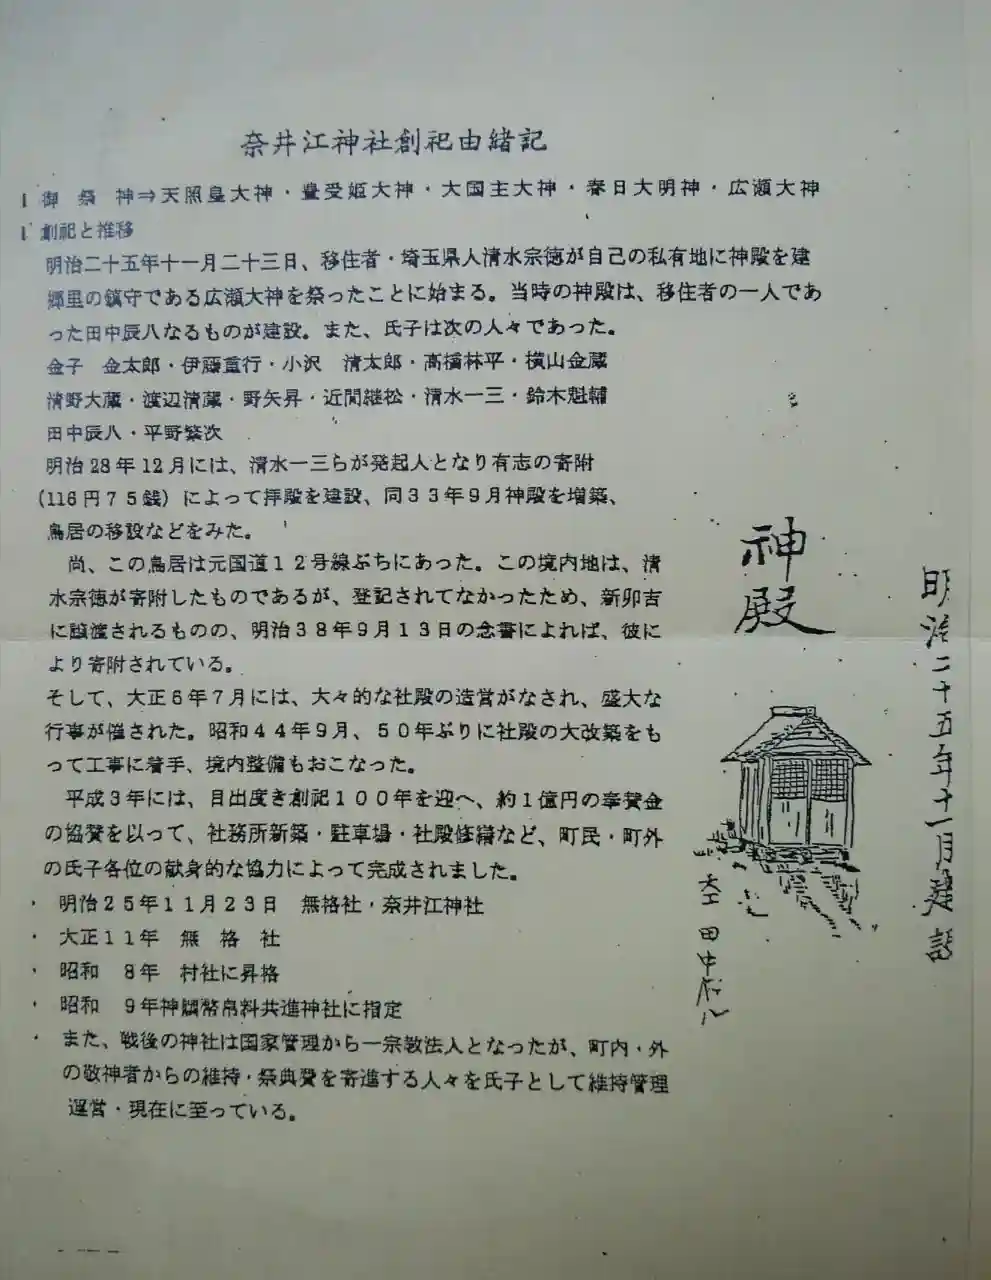 奈井江神社創祀由緒記
御 祭 神⇒天照皇大神・豊受姫大神・大国主大神・春日大明神・広瀬大神
創祀と推移
明治二十五年十一月二十三日、移住者・埼玉県人清水宗徳が自己の私有地に神殿を建
郷里の鎮守である広瀬大神を祭ったことに始まる。当時の神殿は、移住者の一人であ
った田中辰八なるものが建設。また、氏子は次の人々であった。
金子 金太郎・伊藤重行・小沢 清太郎・高橋林平・横山金蔵
清野大蔵・渡辺清蔵・野矢昇・近間継松・清水一三・鈴木魁輔
田中辰八・平野繁次
明治28年12月には、清水一三らが発起人となり有志の寄附
(116円75銭)によって拝殿を建設、同33年9月神殿を増築、
鳥居の移設などをみた。
尚、この鳥居は元国道12号線ぶちにあった。この境内地は、清
水宗徳が寄附したものであるが、登記されてなかったため、新卯吉
に譲渡されるものの、明治38年9月13日の念書によれば、彼に
より寄附されている。
そして、大正6年7月には、大々的な社殿の造営がなされ、盛大な
行事が催された。昭和44年9月、50年ぶりに社殿の大改築をも
って工事に着手、境内整備もおこなった。
平成3年には、目出度き創祀100年を迎へ、約1億円の奉賛金
の協賛を以って、社務所新築・駐車場・社殿修繕など、町民・町外
の氏子各位の献身的な協力によって完成されました。
・ 明治25年11月23日 無格社・奈井江神社
・ 大正11年 無 格 社
・ 昭和 8年 村社に昇格
・ 昭和 9年神饌幣帛料共進神社に指定
・ また、戦後の神社は国家管理から一宗教法人となったが、町内・外
の敬神者からの維持・祭典費を寄進する人々を氏子として維持管理
運営・現在に至っている。
神殿
明治二十五年十一月建設
大工 田中辰八